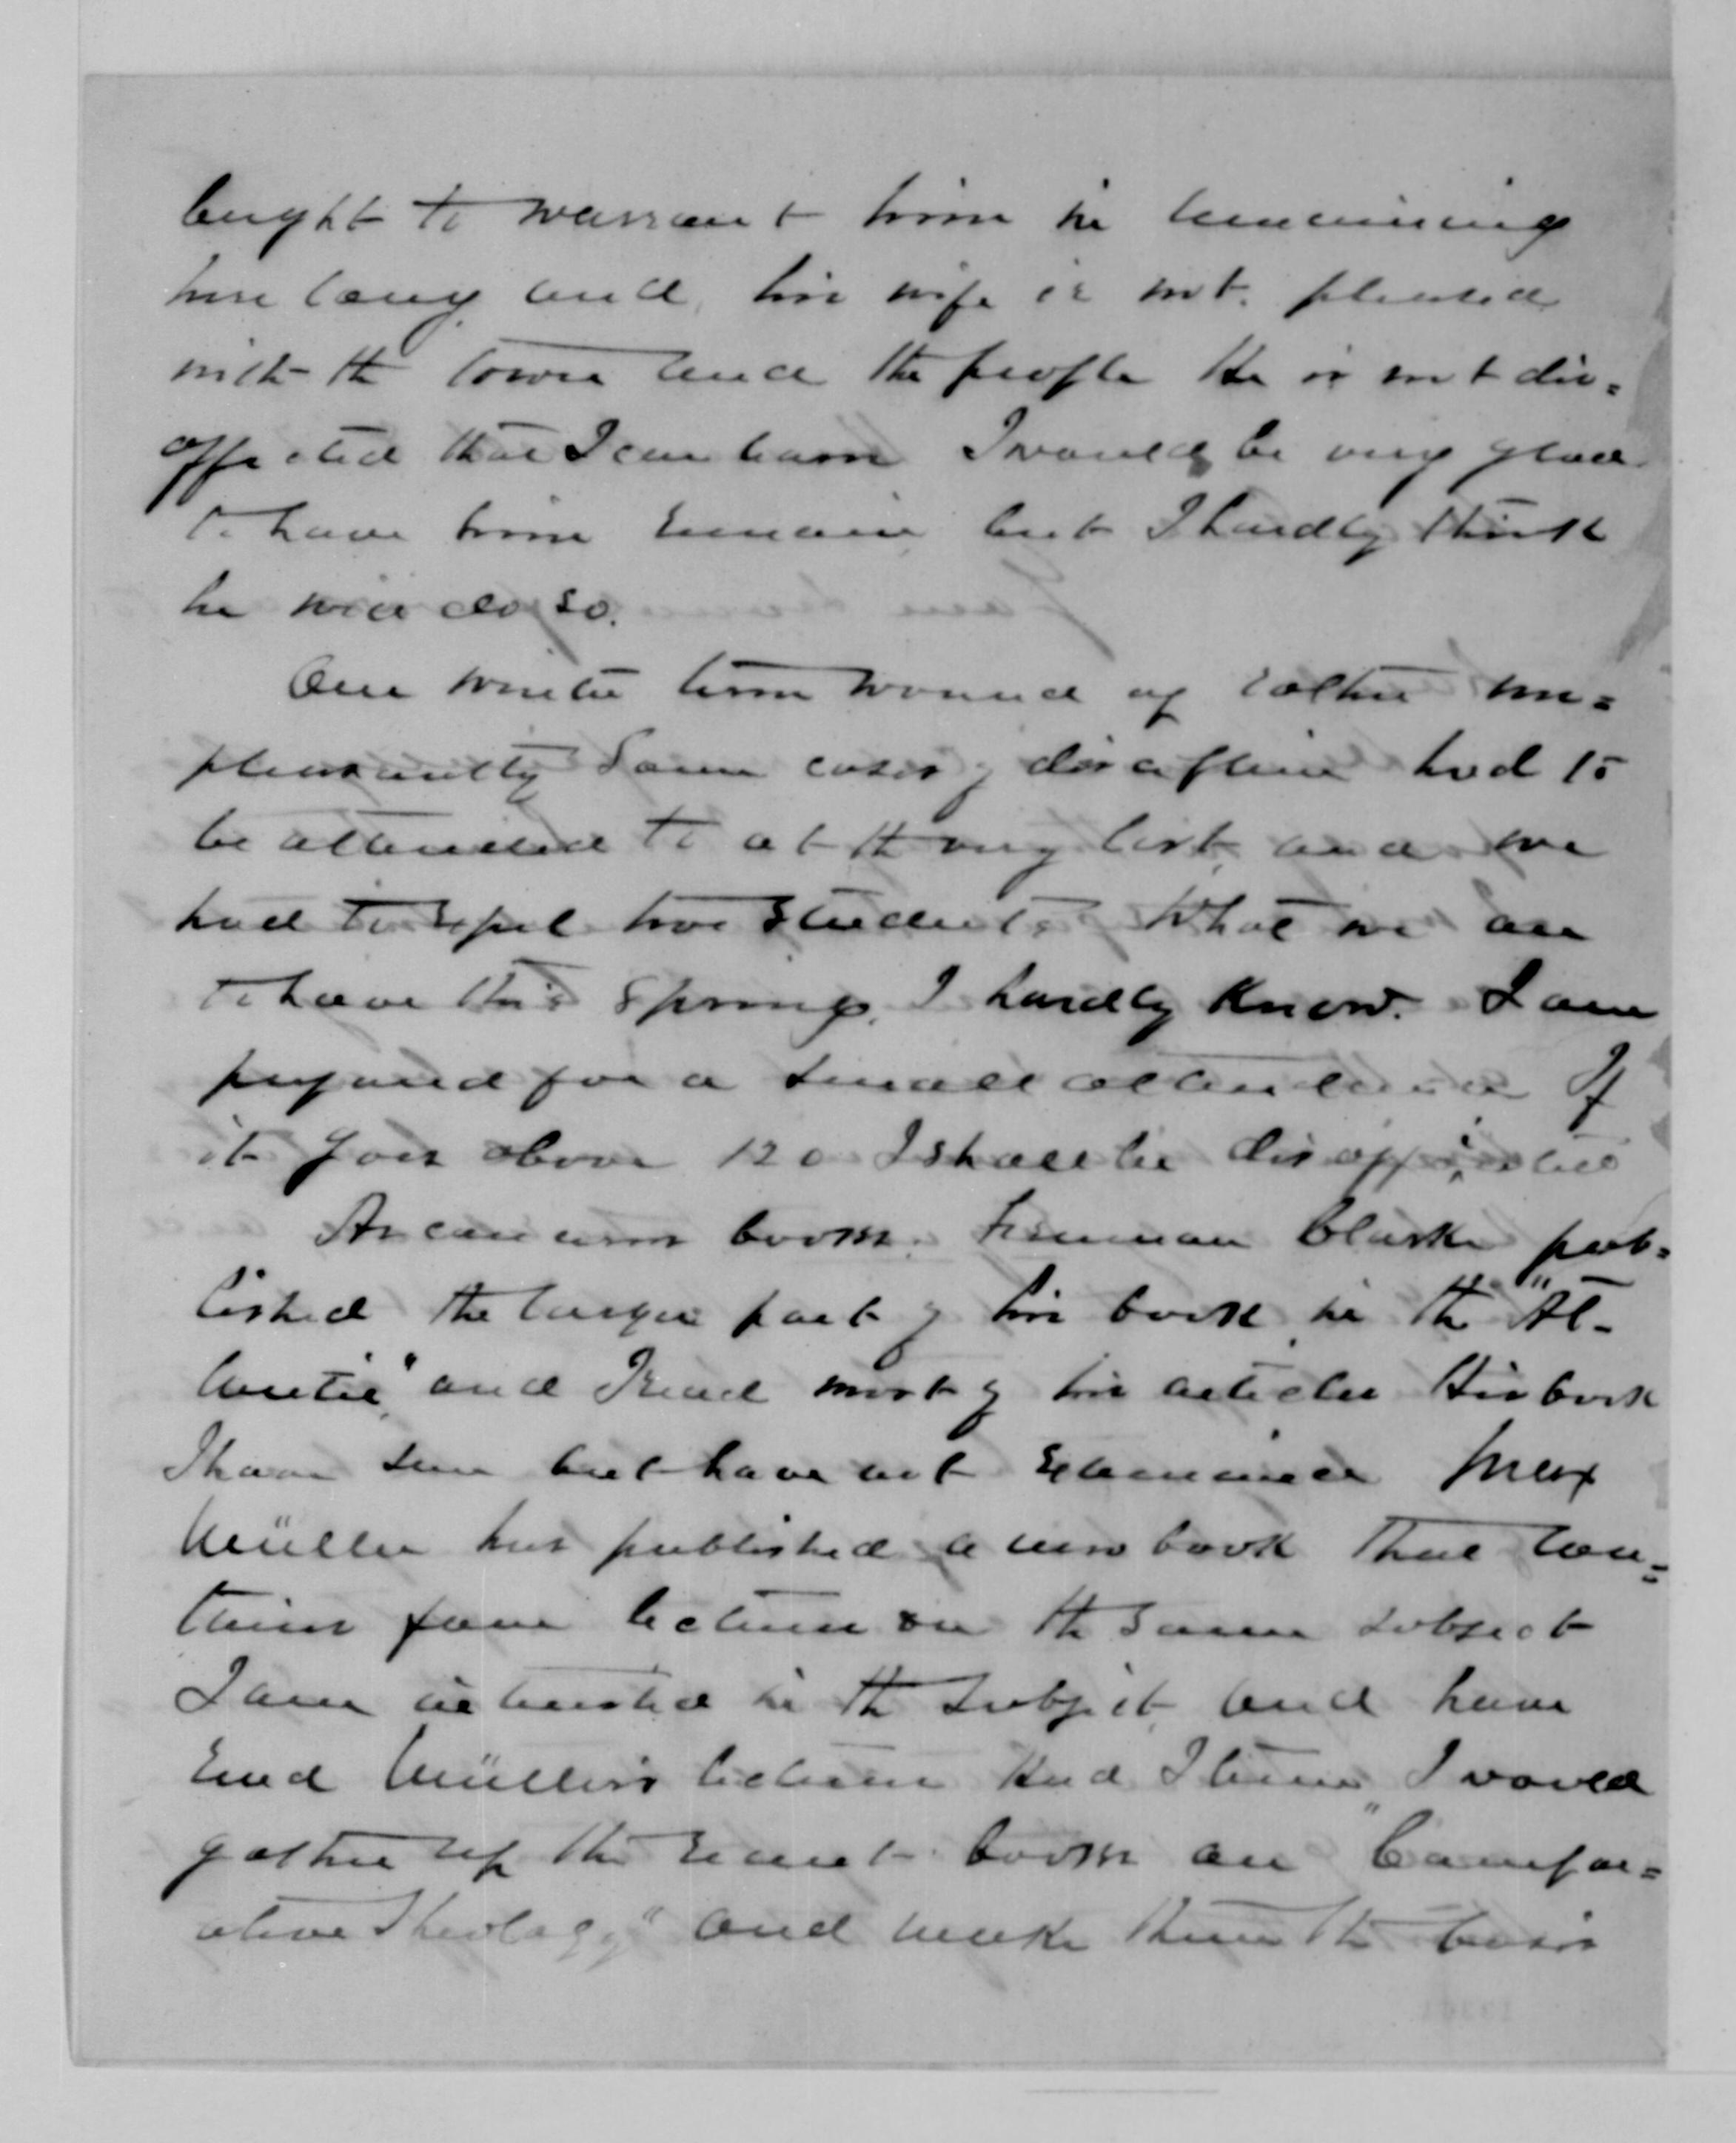 bright to warrant him in remaining
here long and, his wife is not pleased
with the town and the people He is not dis=
affected that I can learn I would be very glad
to have him remain but I hardly think
he will do so.
Our winter term wound up rather un=
pleasantly Some cases of discipline had to
be attended to at the very last, and we
had to expel two students What we are
to have this spring, I hardly know. I am
prepared for a small attendance If
it goes above 120 I shall be disappointed
As concerns books. Freeman Clarke pub=
lished the larger part of his book in the "At-
lantic," and I read most of his articles His book
I have seen but have not examined Max
Müller has published a new book that con=
tains four lectures on the same subject
I am interested in the subject, and have
read Müller's lectures Had I time, I would
gather up the recent books on "Compar=
ative Theology" and make them the basis